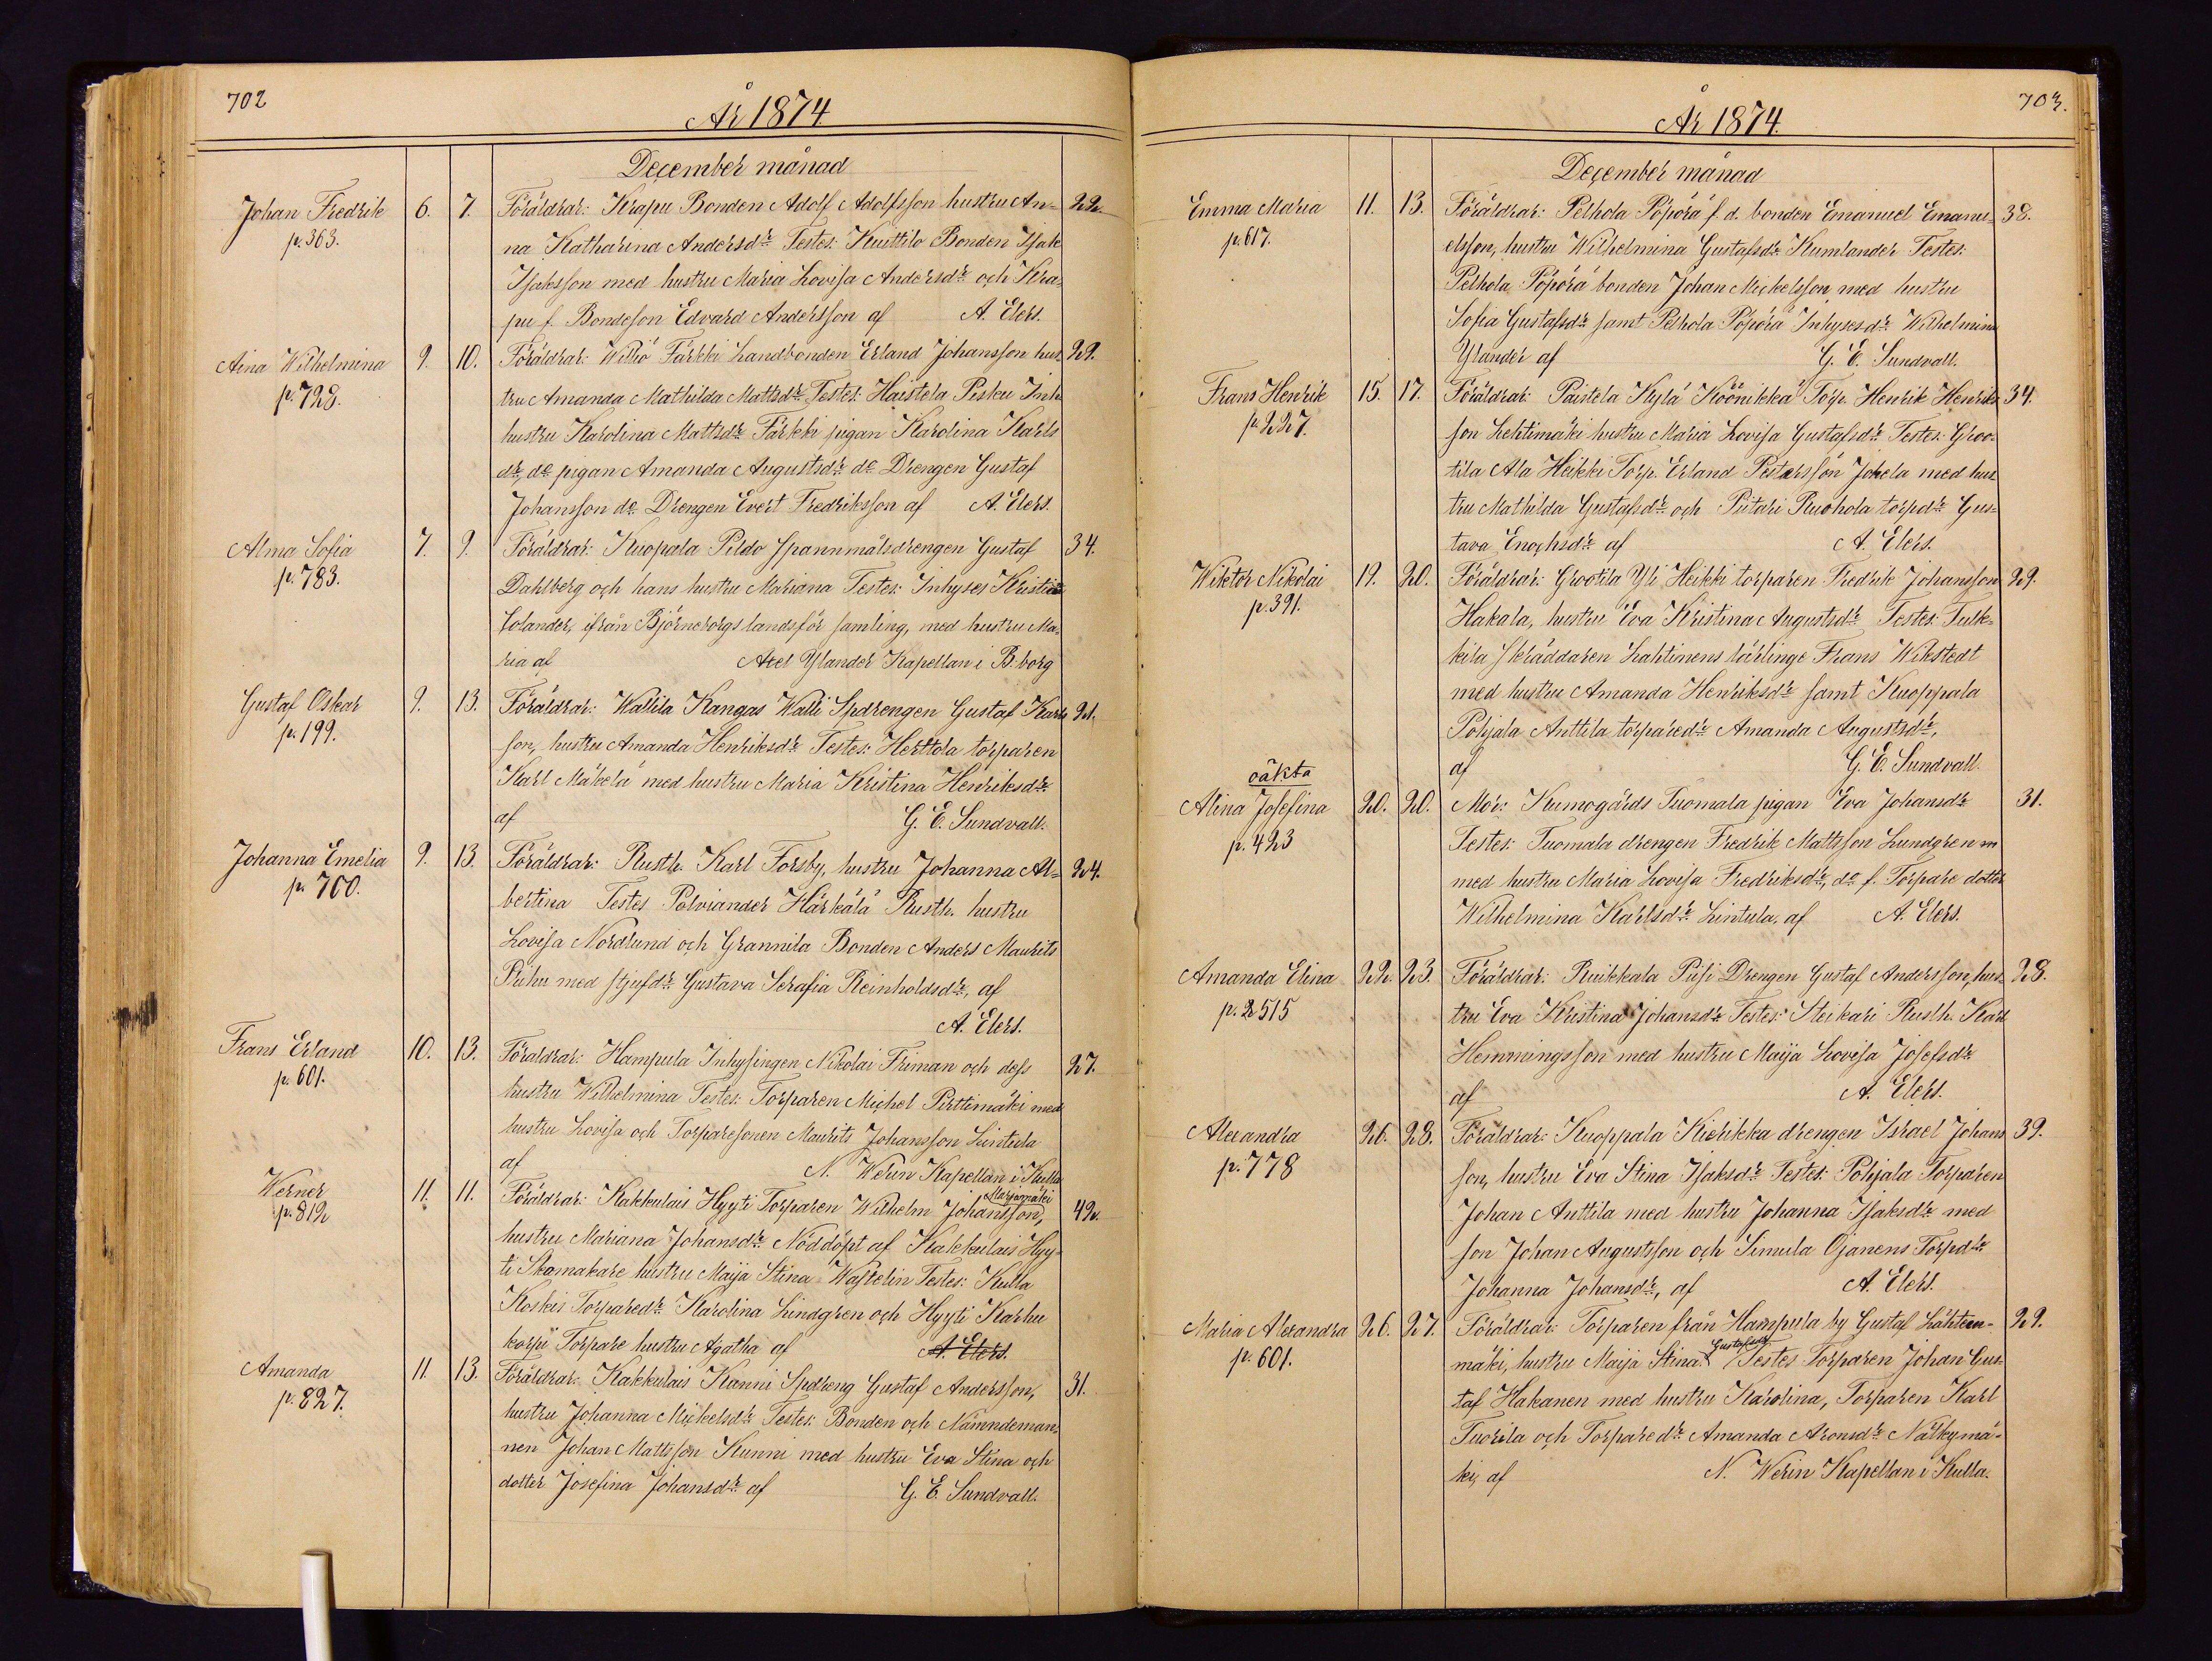 702
År 1874
December månad
Johan Fredrik 6. 7. Föräldrar: Krapu Bonden Adolf Adolfsson hustru An- 22.
p. 363. na Katharina Andersdr. Testes: Kuittilo Bonden Isak
Isaksson med hustru Maria Lovisa Andersdr. och Kra-
pu f. Bondeson Edvard Andersson af A. Elers.
Aina Wilhelmina 9. 10. Föräldrar: Wiltiö Färkki Landbonden Erland Johansson hus 29.
p. 728. tru Amanda Mathilda Mattsdr. Testes: Haistela Pisku Inh.
hustru Karolina Mattsdr. Färkki pigan Karolina Karls
dr, do pigan Amanda Augustsdr. do Drengen Gustaf
Johansson do Drengen Evert Fredriksson af A. Elers.
Alma Sofia 7. 9. Föräldrar: Kuopala Pildo Spannmålsdrengen Gustaf 34.
p. 783. Dahlberg och hans hustru Mariana Testes: Inhyses Kristian
Jolander, ifrån Björneborgs landsför samling, med hustru Ma-
ria af Axel Ylander Kapellan i B.borg
Gustaf Oskar 9. 13. Föräldrar: Wallila Kangas Walli Spdrengen Gustaf Karls 21.
p. 199. son, hustru Amanda Henriksdr. Testes: Herttola torparen
Karl Mäkelä med hustru Maria Kristina Henriksdr.
af G. E. Sundvall.
Johanna Emelia 9. 13. Föräldrar: Rusth. Karl Forsby, hustru Johanna Al- 24.
p. 700. bertina Testes Polviander Härkälä Rusth. hustru
Lovisa Nordlund och Grannila Bonden Anders Maurits
Riihu med stjufdr. Gustava Serafia Reinholdsdr, af
A. Elers.
Frans Erland 10. 13. Föräldrar: Hampula Inhysingen Nikolai Friman och dess 27.
p. 601. hustru Wilhelmina Testes: Torparen Michel Pirttimäki med
hustru Lovisa och Torparesonen Maurits Johansson Lintula
af N. Werin Kapellan i Kulla
Harjamäki
Werner 11. 11. Föräldrar: Kakkulais Hyyti Torparen Wilhelm Johansson, 42.
p. 812 hustru Mariana Johansdr. Nöddöpt af Kakkulais Hyy-
ti Skomakare hustru Maija Stina Wastelin Testes: Kulla
Koskis Torparedr. Karolina Lindgren och Hyyti Karhu
korpi Torpare hustru Agatha af A. Elers.
Amanda 11. 13. Föräldrar: Kakkulais Kanni Spdreng Gustaf Andersson, 31.
p. 827. hustru Johanna Mickelsdr. Testes: Bonden och Nämndeman-
nen Johan Mattsson Kunni med hustru Eva Stina och
dotter Josefina Johansdr. af G. E. Sundvall.
703.
År 1874.
December månad
Emma Maria 11. 13. Föräldrar: Pelhola Pöpörä f. d. bonden Emanuel Emanu- 38.
p. 617. elsson, hustru Wilhelmina Gustafsdr. Kumlander Testes:
Pelhola Pöpörä bonden Johan Mickelsson med hustru
Sofia Gustafsdr. samt Pelhola Pöpörä Inhysesdr. Wilhelmina
Ylander af G. E. Sundvall.
Frans Henrik 15. 17. Föräldrar: Paistela Kylä Köönikkä Torp. Henrik Henriks 34.
p. 227. son Lehtimäki hustru Maria Lovisa Gustafsdr. Testes: Groo-
tila Ala Heikki Torp. Erland Petersson Jokela med hus
tru Mathilda Gustafsdr. och Piitari Ruohola torpdr. Gus-
tava Enochsdr. af A. Elers.
Wiktor Nikolai 19. 20. Föräldrar: Grootila Yli Heikki torparen Fredrik Johansson 29.
p. 391. Hakala, hustru Eva Kristina Augustsdr. Testes: Tulk-
kila skräddaren Lahtinens lärlinge Frans Wikstedt
med hustru Amanda Henriksdr. samt Kuoppala
Pohjala Anttila torparedr. Amanda Augustsdr,
af G. E. Sundvall.
oäkta
Alina Josefina 20. 20. Mor: Kumogårds Tuomala pigan Eva Johansdr. 31.
p. 423 Testes: Tuomala drengen Fredrik Mattsson Lundgren m
med hustru Maria Lovisa Fredriksdr, do f. Torpare dotter
Wilhelmina Karlsdr. Lintula. af A. Elers.
Amanda Elina 22. 23. Föräldrar: Ruikkala Piisi Drengen Gustaf Andersson, hus- 28.
p. 2515 tru Eva Kristina Johansdr. Testes: Steikari Rusth. Karl
Hemmingsson med hustru Maija Lovisa Josefsdr.
af A. Elers.
Alexandra 26. 28. Föräldrar: Kuoppala Kierikka drengen Israel Johans 39.
p. 778 son, hustru Eva Stina Isaksdr. Testes: Pohjala Torparen
Johan Anttila med hustru Johanna Isaksdr. med
son Johan Augustsson och Simula Ojanens Torpdr.
Johanna Johansdr, af A. Elers.
Maria Alexandra 26. 27. Föräldrar: Torparen från Hampula by Gustaf Lähteen- 29.
Gustafsdr
p. 601. mäki, hustru Maija Stina. Testes Torparen Johan Gus-
taf Hakanen med hustru Karolina, Torparen Karl
Tuorila och Torparedr. Amanda Aronsdr. Nälkymä-
ki, af N. Werin Kapellan i Kulla.